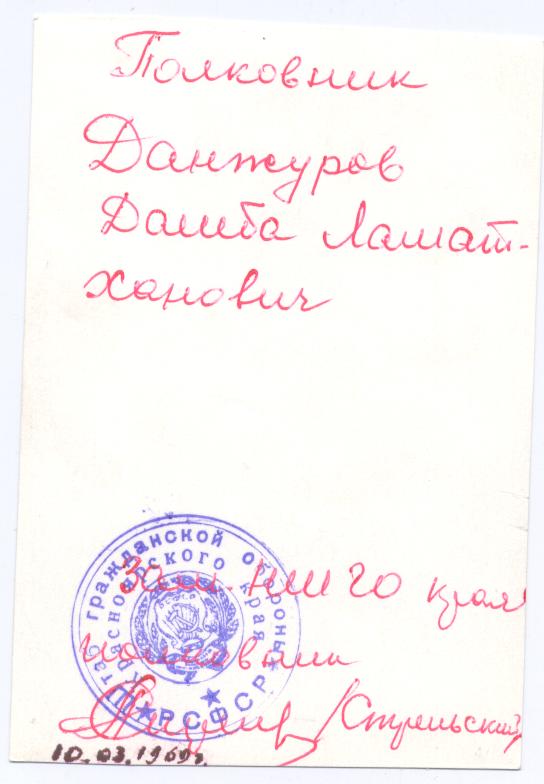 Полковник
Данжуров
Дамба Ламат-
ханович
Штаб гражданской обороны
Красноярского края
РСФСР
Зам. НШ ГО края
полковник
/Стрельский/
10.03.1969г.